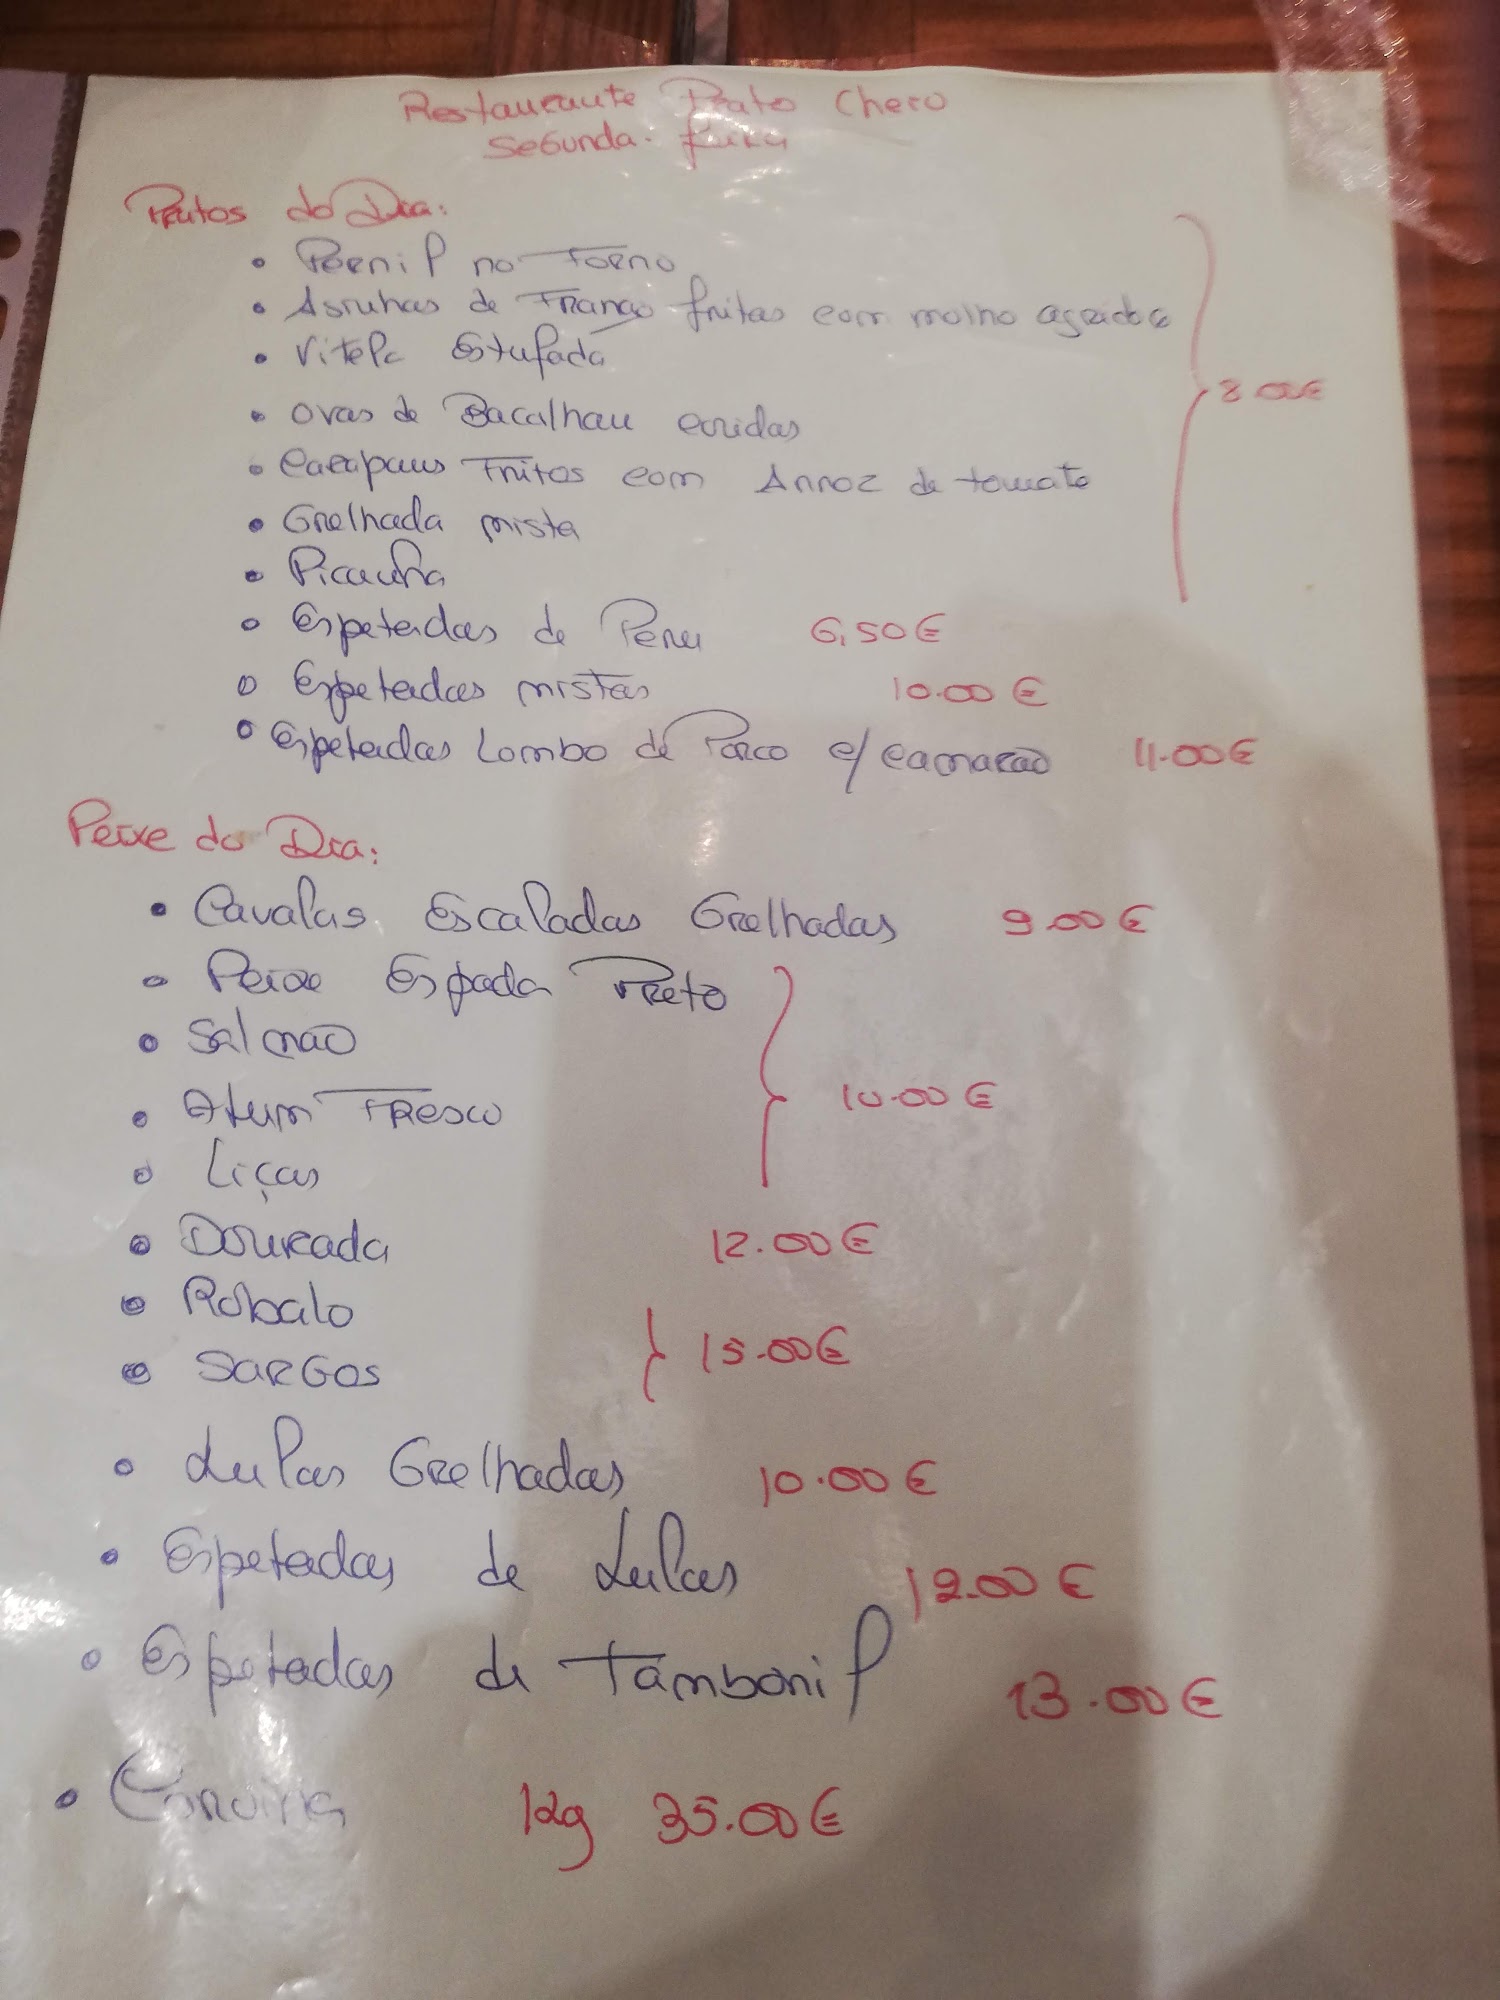 Restaurante Prato Cheio
Segunda-feira
Pratos do Dia:
• Pernil no Forno
• Asinhas de Frango fritas com molho agridoce
• Vitela Estufada
• Ovas de Bacalhau cozidas
• Carapaus Fritos com Arroz de tomate
• Grelhada mista
• Picanha
8.00€
• Espetadas de Peru 6,50€
• Espetadas mistas 10.00€
• Espetadas Lombo de Porco c/ camarão 11.00€
Peixe do Dia:
• Cavalas Escaladas Grelhadas 9.00€
• Peixe Espada Preto
• Salmão
• Atum Fresco
• Liças
10.00€
• Dourada 12.00€
• Robalo
• Sargos
15.00€
• Lulas Grelhadas 10.00€
• Espetadas de Lulas 12.00€
• Espetadas de Tamboril 13.00€
• Corvina kg 35.00€